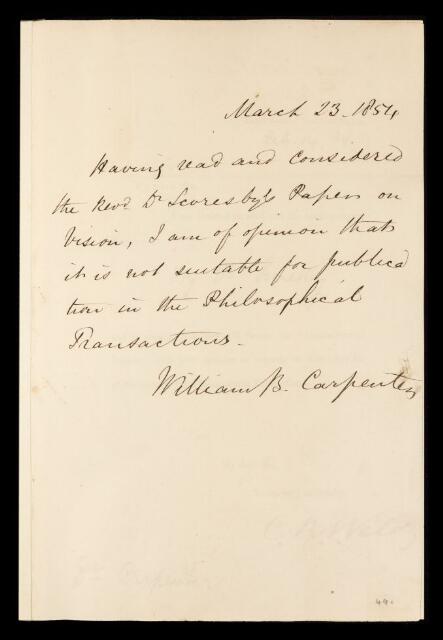 March 23. 1854,
Having read and considered
the Revd Dr Scoresby's Paper on
Vision, I am of opinion that
it is not suitable for publica
tion in the Philosophical
Transactions.
William B. Carpenter